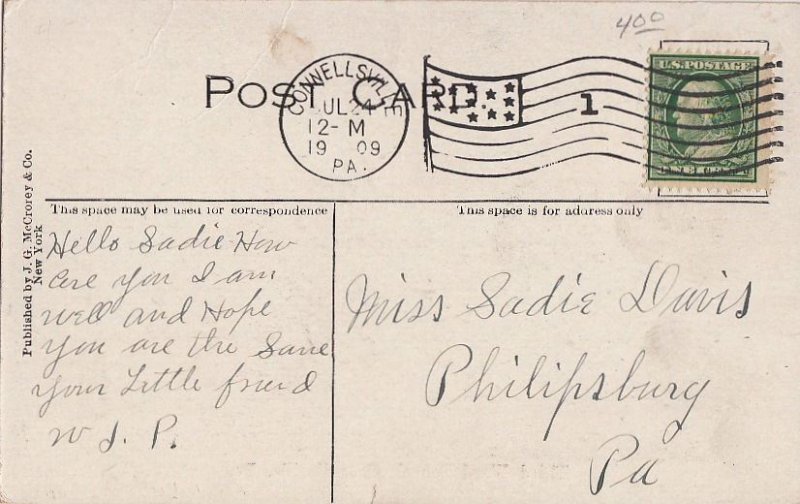 400
POST CARD.
CONNELLSVILLE
JUL 24
12-M
1909
PA.
1
U.S. POSTAGE
Published by J. G. McCrorey & Co.
New York
This space may be used for correspondence
Hello Sadie How
are you I am
well and Hope
you are the Same
your Little friend
W J. P.
This space is for address only
Miss Sadie Davis
Philipsburg
Pa